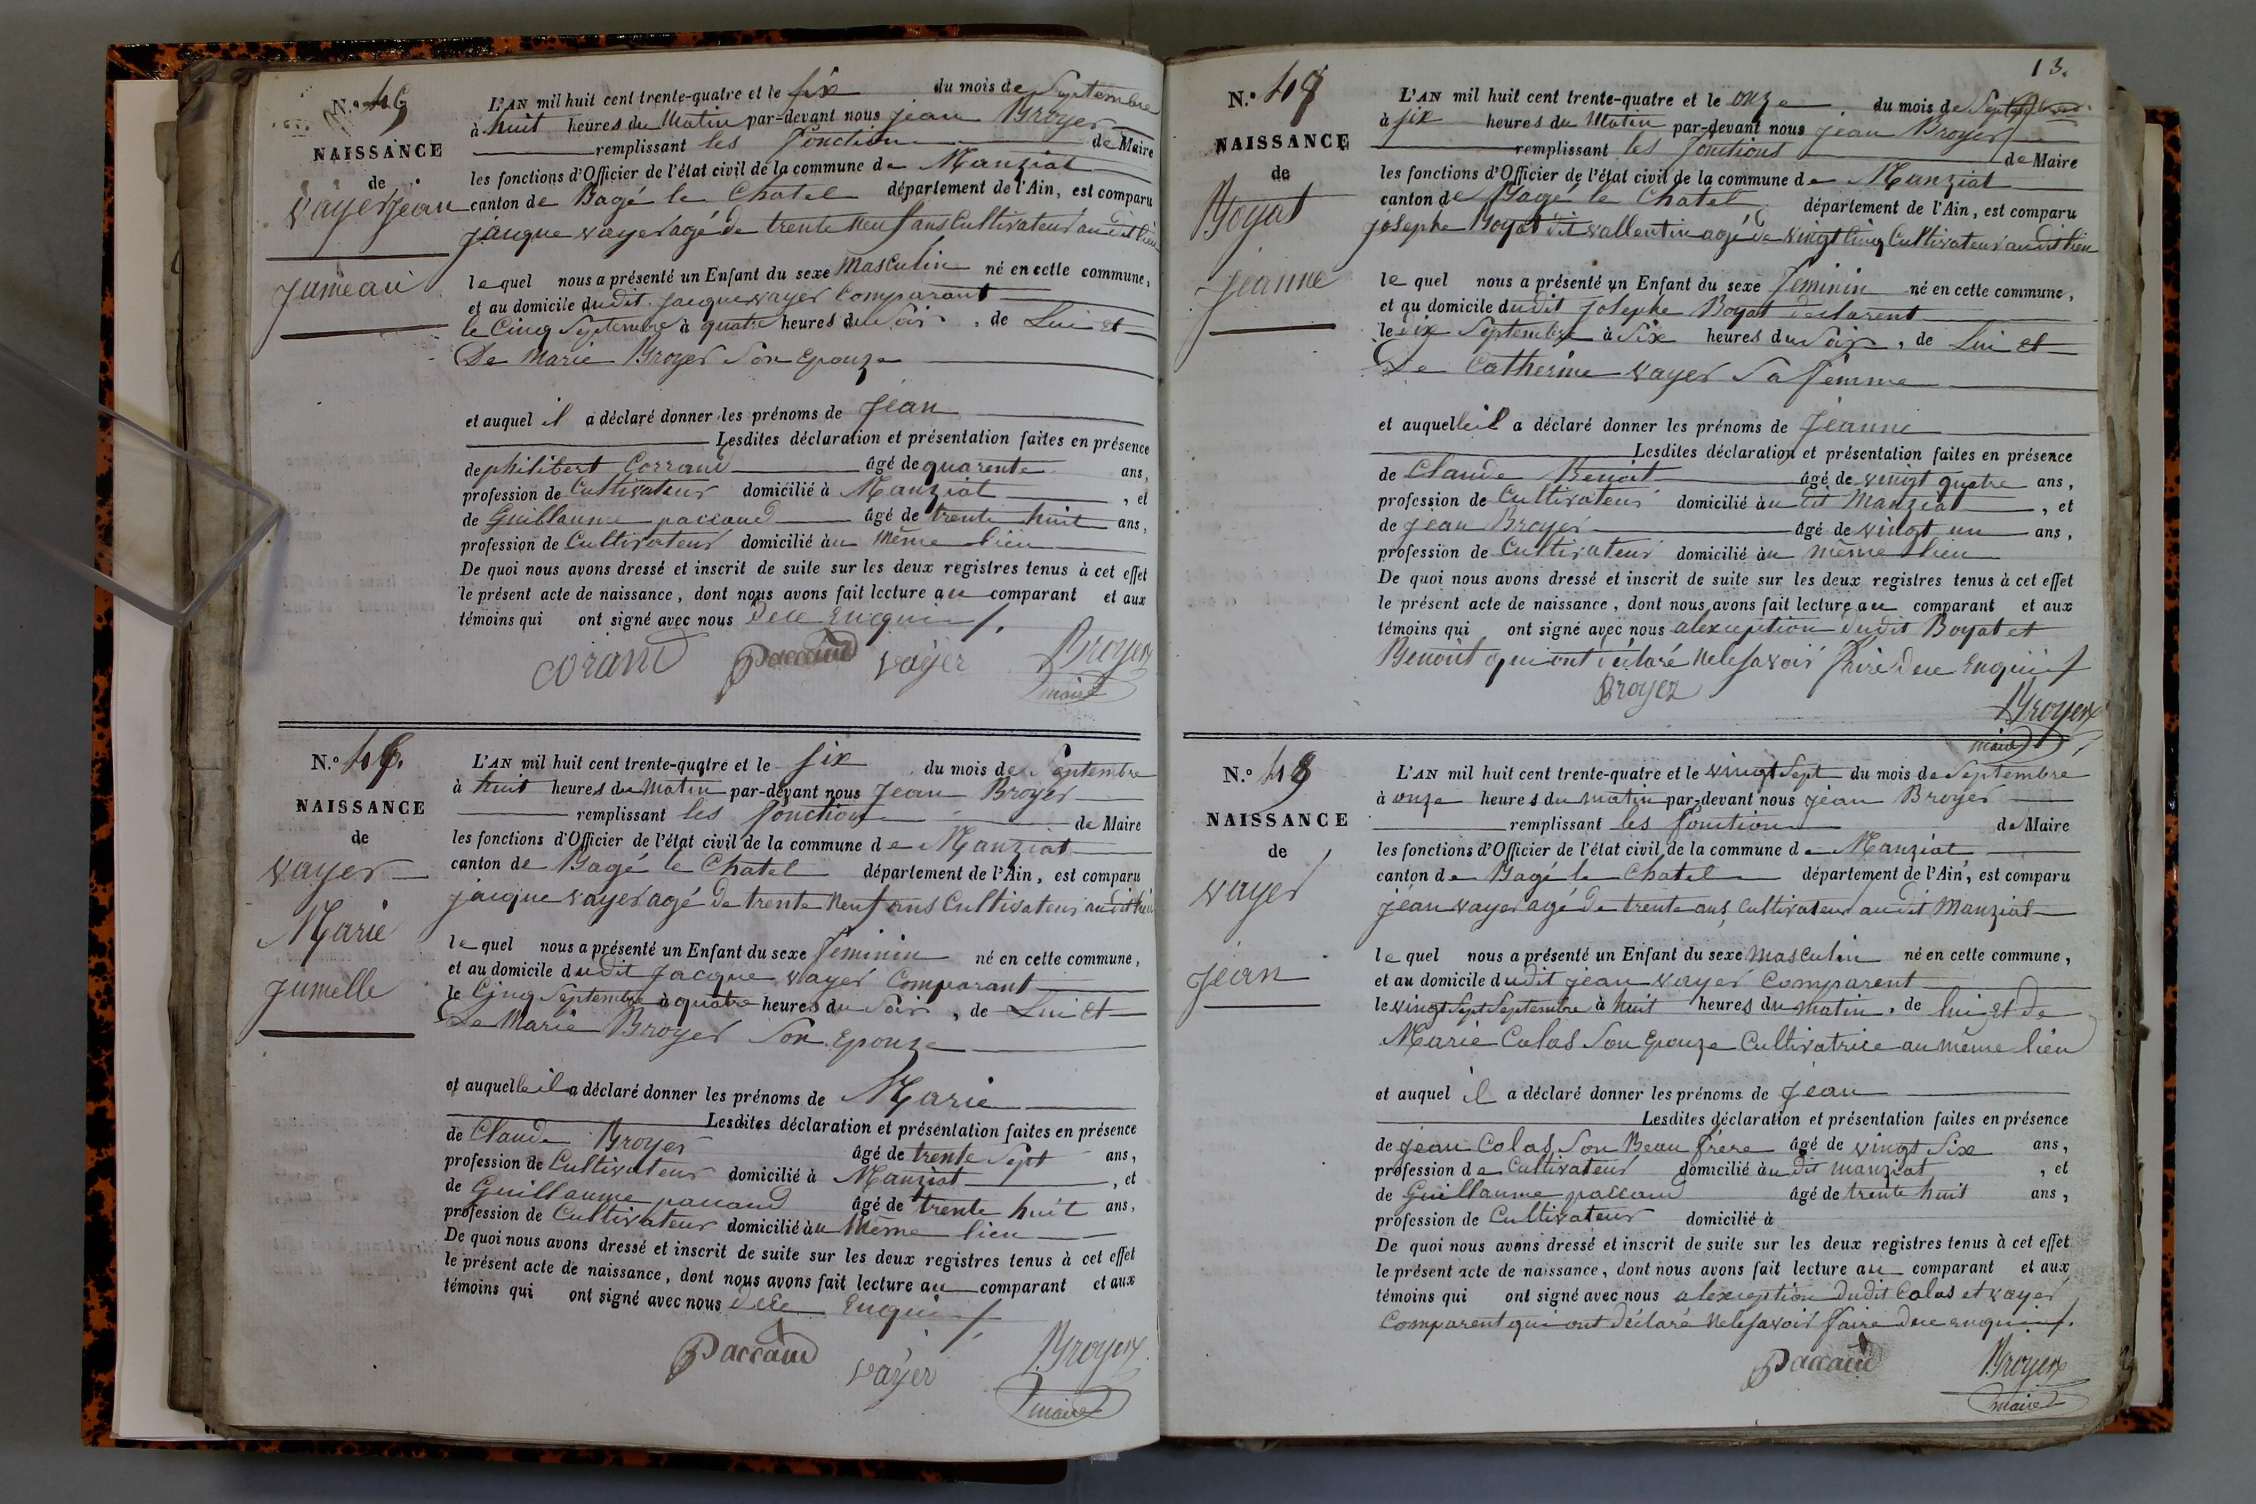 N.º
NAISSANCE
de
Vayer Jean
Jumeau
L'AN mil huit cent trente-quatre et le six du mois de Septembre
à huit heures du Matin par-devant nous jean Broyer
remplissant les fonction de Maire
les fonctions d'Officier de l'état civil de la commune de Manziat
canton de Bagé le Chatel département de l'Ain, est comparu
jacque vayer agé de trente neuf ans Cultivateur audit lieu
lequel nous a présenté un Enfant du sexe Masculin né en cette commune,
et au domicile dudit jacque vayer Comparant
le Cinq Septembre à quatre heures du Soir, de Lui et
De Marie Broyer Son Epouze
et auquel il a déclaré donner les prénoms de Jean
Lesdites déclaration et présentation faites en présence
de philibert Corrand âgé de quarente ans,
profession de Cultivateur domicilié à Manziat, et
de Guillaume paccaud âgé de trente huit ans,
profession de Cultivateur domicilié au Même lieu
De quoi nous avons dressé et inscrit de suite sur les deux registres tenus à cet effet
le présent acte de naissance, dont nous avons fait lecture au comparant et aux
témoins qui ont signé avec nous dece Enquis
corand Paccaud vayer Broyer
maire
N.º
NAISSANCE
de
Vayer
Marie
Jumelle
L'AN mil huit cent trente-quatre et le six du mois de Septembre
à huit heures du Matin par-devant nous Jean Broyer
remplissant les fonction de Maire
les fonctions d'Officier de l'état civil de la commune de Manziat
canton de Bagé le Chatel département de l'Ain, est comparu
jacque vayer agé de trente neuf ans Cultivateur audit lieu
lequel nous a présenté un Enfant du sexe feminin né en cette commune,
et au domicile dudit Jacque vayer Comparant
le Cinq Septembre à quatre heures du Soir, de Lui et
De Marie Broyer Son Epouze
et auquelle il a déclaré donner les prénoms de Marie
Lesdites déclaration et présentation faites en présence
de Claude Broyer âgé de trente Sept ans,
profession de Cultivateur domicilié à Manziat, et
de Guillaume paccaud âgé de trente huit ans,
profession de Cultivateur domicilié au Même lieu
De quoi nous avons dressé et inscrit de suite sur les deux registres tenus à cet effet
le présent acte de naissance, dont nous avons fait lecture au comparant et aux
témoins qui ont signé avec nous dece Enquis
Paccaud vayer Broyer
maire
13.
N.º 47
NAISSANCE
de
Boyat
Jeanne
L'AN mil huit cent trente-quatre et le onze du mois de Septembre
à six heures du Matin par-devant nous jean Broyer
remplissant les fonctions de Maire
les fonctions d'Officier de l'état civil de la commune de Manziat
canton de Bagé le Chatel département de l'Ain, est comparu
josephe Boyat dit vallentin agé de vingt cinq Cultivateur audit lieu
lequel nous a présenté un Enfant du sexe feminin né en cette commune,
et au domicile dudit josephe Boyat declarent
le dix Septembre à Six heures du Soir, de Lui et
De Catherine vayer Sa femme
et auquelle il a déclaré donner les prénoms de Jeanne
Lesdites déclaration et présentation faites en présence
de Claude Benoit âgé de vingt quatre ans,
profession de Cultivateur domicilié au dit Manziat, et
de jean Broyer âgé de vingt un ans,
profession de Cultivateur domicilié au même lieu
De quoi nous avons dressé et inscrit de suite sur les deux registres tenus à cet effet
le présent acte de naissance, dont nous avons fait lecture au comparant et aux
témoins qui ont signé avec nous alexception dudit Boyat et
Benoit qui ont déclaré ne le savoir faire dece Enquis
Broyer
Broyer
maire
N.º 48
NAISSANCE
de
vayer
jean
L'AN mil huit cent trente-quatre et le vingt Sept du mois de Septembre
à onze heures du matin par-devant nous jean Broyer
remplissant les fonction de Maire
les fonctions d'Officier de l'état civil de la commune de Manziat
canton de Bagé le Chatel département de l'Ain, est comparu
jean vayer agé de trente ans Cultivateur audit Manziat
lequel nous a présenté un Enfant du sexe Masculin né en cette commune,
et au domicile dudit jean vayer Comparent
le vingt Sept Septembre à huit heures du matin, de lui et de
Marie Colas Son Epouze Cultivatrice au même lieu
et auquel il a déclaré donner les prénoms de jean
Lesdites déclaration et présentation faites en présence
de jean Colas Son Beau frere âgé de vingt Six ans,
profession de Cultivateur domicilié au dit manziat, et
de Guillaume paccaud âgé de trente huit ans,
profession de Cultivateur domicilié à
De quoi nous avons dressé et inscrit de suite sur les deux registres tenus à cet effet
le présent acte de naissance, dont nous avons fait lecture au comparant et aux
témoins qui ont signé avec nous alexception dudit Colas et vayer
Comparent qui ont déclaré ne le savoir faire dece enquis.
Paccaud Broyer
maire